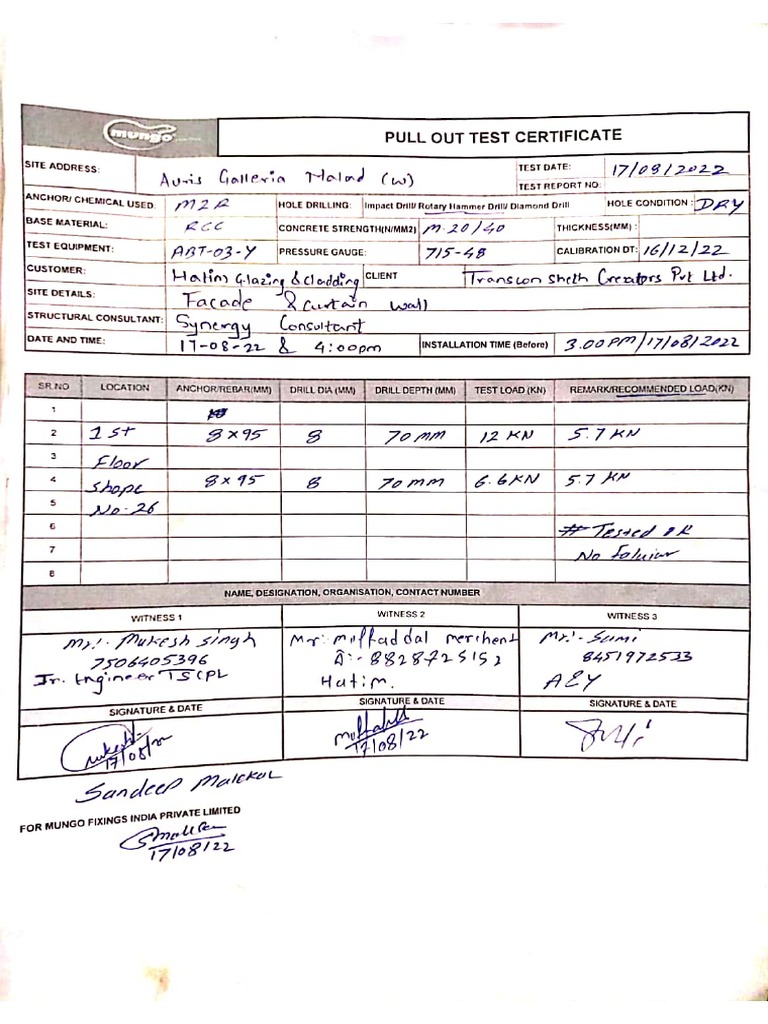 mungo
PULL OUT TEST CERTIFICATE
SITE ADDRESS: Auris Galleria Malad (W)
TEST DATE: 17/08/2022
TEST REPORT NO:
ANCHOR/ CHEMICAL USED: M2R HOLE DRILLING: Impact Drill/ Rotary Hammer Drill/ Diamond Drill HOLE CONDITION : DRY
BASE MATERIAL: RCC CONCRETE STRENGTH(N/MM2) M-20/40 THICKNESS(MM) :
TEST EQUIPMENT: ABT-03-Y PRESSURE GAUGE: 715-48 CALIBRATION DT: 16/12/22
CUSTOMER: Hatim Glazing & Cladding CLIENT Transcon Sheth Creators Pvt Ltd.
SITE DETAILS: Facade & Curtain wall
STRUCTURAL CONSULTANT: Synergy Consultant
DATE AND TIME: 17-08-22 & 4:00pm INSTALLATION TIME (Before) 3.00PM/17/08/2022
SR.NO LOCATION ANCHOR/REBAR(MM) DRILL DIA (MM) DRILL DEPTH (MM) TEST LOAD (KN) REMARK/RECOMMENDED LOAD(KN)
1
2 1st 8x95 8 70mm 12 KN 5.7 KN
3 Floor
4 Shope 8x95 8 70mm 6.6KN 5.7 KN
5 No-26
6 # Tested OK
7 No Faluiar
8
NAME, DESIGNATION, ORGANISATION, CONTACT NUMBER
WITNESS 1 WITNESS 2 WITNESS 3
Mr:- Mukesh Singh Mr:- Moffaddal merchent Mr:- Sumi
7506405396 8828725152 8451972533
Jr. Engineer TSCPL Hatim. A&Y
SIGNATURE & DATE SIGNATURE & DATE SIGNATURE & DATE
17/08/22 17/08/22
Sandeep
FOR MUNGO FIXINGS INDIA PRIVATE LIMITED
17/08/22